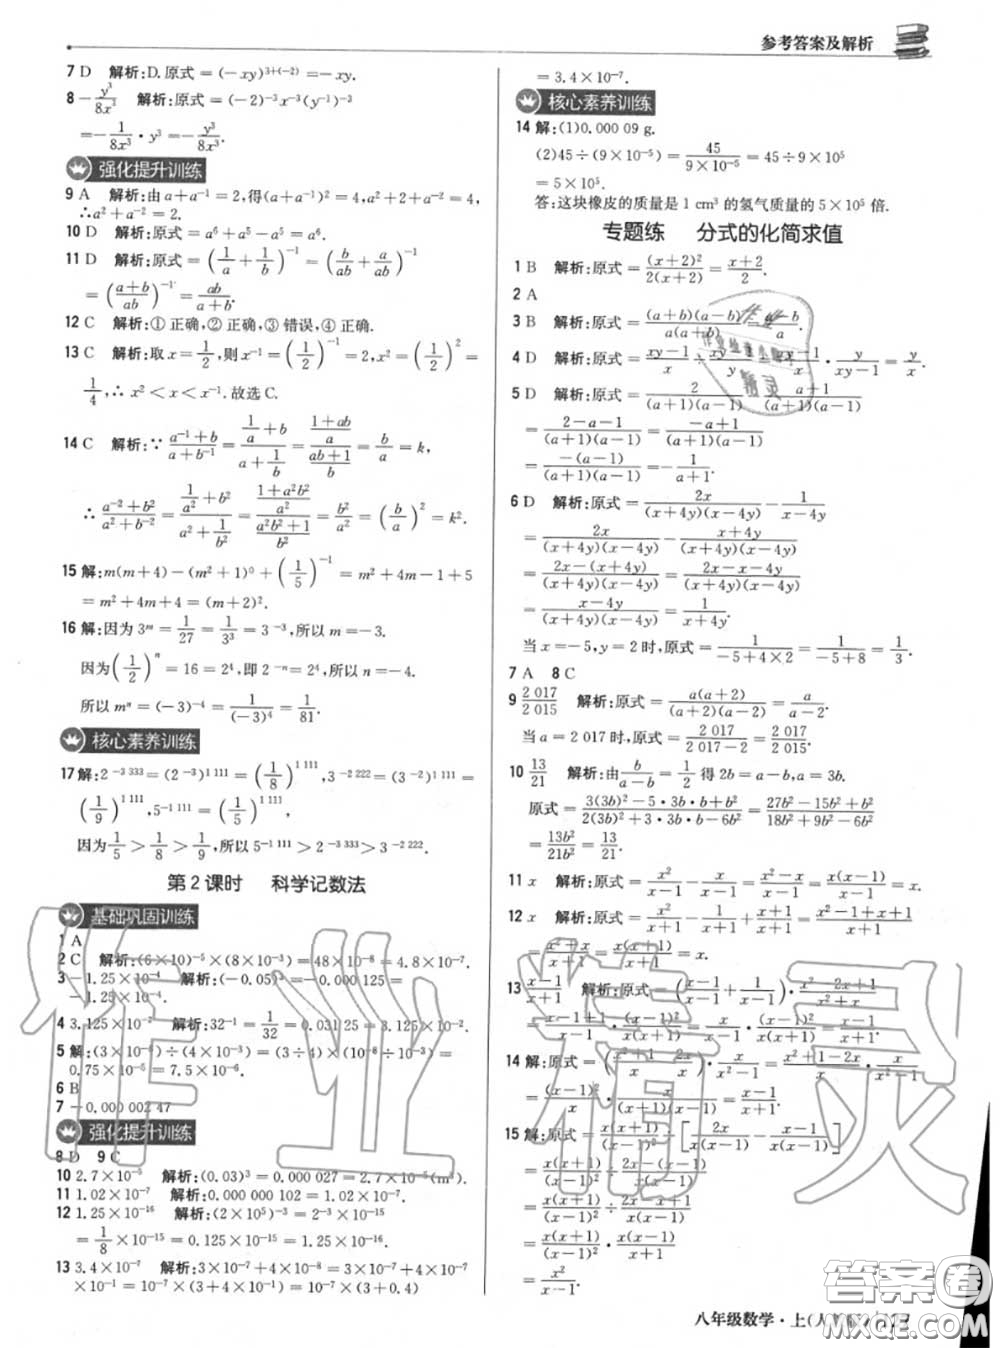 参考答案及解析
7 D 解析:D.原式=(-xy)³⁺⁽⁻²⁾=-xy.
8 -y³/8x³ 解析:原式=(-2)⁻³x⁻³(y⁻¹)⁻³
=-1/8x³·y³=-y³/8x³.
强化提升训练
9 A 解析:由a+a⁻¹=2,得(a+a⁻¹)²=4,a²+a⁻²+2=4,
∴a²+a⁻²=2.
10 D 解析:原式=a⁶+a⁵-a⁵=a⁶.
11 D 解析:原式=(1/a+1/b)⁻¹=(b/ab+a/ab)⁻¹
=((a+b)/ab)⁻¹=ab/(a+b).
12 C 解析:①正确,②正确,③错误,④正确.
13 C 解析:取x=1/2,则x⁻¹=(1/2)⁻¹=2,x²=(1/2)²=
1/4,∴x²<x<x⁻¹.故选C.
14 C 解析:∵(a⁻¹+b)/(a+b⁻¹)=(1/a+b)/(a+1/b)=((1+ab)/a)/((ab+1)/b)=b/a=k,
∴(a⁻²+b²)/(a²+b⁻²)=(1/a²+b²)/(a²+1/b²)=((1+a²b²)/a²)/((a²b²+1)/b²)=b²/a²=(b/a)²=k².
15 解:m(m+4)-(m²+1)⁰+(1/5)⁻¹=m²+4m-1+5
=m²+4m+4=(m+2)².
16 解:因为3ᵐ=1/27=1/3³=3⁻³,所以m=-3.
因为(1/2)ⁿ=16=2⁴,即2⁻ⁿ=2⁴,所以n=-4.
所以mⁿ=(-3)⁻⁴=1/(-3)⁴=1/81.
核心素养训练
17 解:2⁻³ ³³³=(2⁻³)¹ ¹¹¹=(1/8)¹ ¹¹¹,3⁻² ²²²=(3⁻²)¹ ¹¹¹=
(1/9)¹ ¹¹¹,5⁻¹ ¹¹¹=(5⁻¹)¹ ¹¹¹=(1/5)¹ ¹¹¹.
因为1/5>1/8>1/9,所以5⁻¹ ¹¹¹>2⁻³ ³³³>3⁻² ²²².
第2课时 科学记数法
基础巩固训练
1 A
2 C 解析:(6×10)⁻⁵×(8×10⁻³)=48×10⁻⁸=4.8×10⁻⁷.
3 -1.25×10⁻⁴ 解析:(-0.05)³=-0.000 125=
-1.25×10⁻⁴.
4 3.125×10⁻² 解析:32⁻¹=1/32=0.031 25=3.125×10⁻².
5 解:(3×10⁻⁸)÷(4×10⁻³)=(3÷4)×(10⁻⁸÷10⁻³)=
0.75×10⁻⁵=7.5×10⁻⁶.
6 B
7 -0.000 002 47
强化提升训练
8 D 9 C
10 2.7×10⁻⁵ 解析:(0.03)³=0.000 027=2.7×10⁻⁵(m³).
11 1.02×10⁻⁷ 解析:0.000 000 102=1.02×10⁻⁷.
12 1.25×10⁻¹⁶ 解析:(2×10⁵)⁻³=2⁻³×10⁻¹⁵=
1/8×10⁻¹⁵=0.125×10⁻¹⁵=1.25×10⁻¹⁶.
13 3.4×10⁻⁷ 解析:3×10⁻⁷+4×10⁻⁸=3×10⁻⁷+0.4
×10⁻¹×10⁻⁷
=3.4×10⁻⁷.
核心素养训练
14 解:(1)0.000 09 g.
(2)45÷(9×10⁻⁵)=45/(9×10⁻⁵)=45÷9×10⁵
=5×10⁵.
答:这块橡皮的质量是1 cm³的氢气质量的5×10⁵倍.
专题练 分式的化简求值
1 B 解析:原式=(x+2)²/2(x+2)=(x+2)/2.
2 A
3 B 解析:原式=(a+b)(a-b)/a(a+b)=(a-b)/a.
4 D 解析:原式=(xy-1)/x÷(xy-1)/y=(xy-1)/x·y/(xy-1)=y/x.
5 D 解析:原式=2/(a+1)(a-1)-(a+1)/(a+1)(a-1)
=(2-a-1)/(a+1)(a-1)=(-a+1)/(a+1)(a-1)
=-(a-1)/(a+1)(a-1)=-1/(a+1).
6 D 解析:原式=2x/(x+4y)(x-4y)-1/(x-4y)
=2x/(x+4y)(x-4y)-(x+4y)/(x+4y)(x-4y)
=(2x-(x+4y))/(x+4y)(x-4y)=(2x-x-4y)/(x+4y)(x-4y)
=(x-4y)/(x+4y)(x-4y)=1/(x+4y).
当x=-5,y=2时,原式=1/(-5+4×2)=1/(-5+8)=1/3.
7 A 8 C
9 2 017/2 015 解析:原式=a(a+2)/(a+2)(a-2)=a/(a-2).
当a=2 017时,原式=2 017/(2 017-2)=2 017/2 015.
10 13/21 解析:由b/(a-b)=1/2得2b=a-b,a=3b.
原式=(3(3b)²-5·3b·b+b²)/(2(3b)²+3·3b·b-6b²)=(27b²-15b²+b²)/(18b²+9b²-6b²)
=13b²/21b²=13/21.
11 x 解析:原式=x²/(x-1)-x/(x-1)=(x²-x)/(x-1)=x(x-1)/(x-1)=x.
12 x 解析:原式=
=(x²+x)/(x+1)=x(x+1)/(x+1)=x.
13 (x-1)/(x+1)
14 解:原式=
=(x-1)²/x·x/(x+1)(x-1)=(x-1)/(x+1).
15 解:原式=x(x+1)/(x-1)²÷[2x/x(x-1)-(x-1)/x(x-1)]
=x(x+1)/(x-1)²÷
=x(x+1)/(x-1)²÷(x+1)/x(x-1)
=x(x+1)/(x-1)²·x(x-1)/(x+1)
=x²/(x-1).
八年级数学·上
作业精灵
答案圈